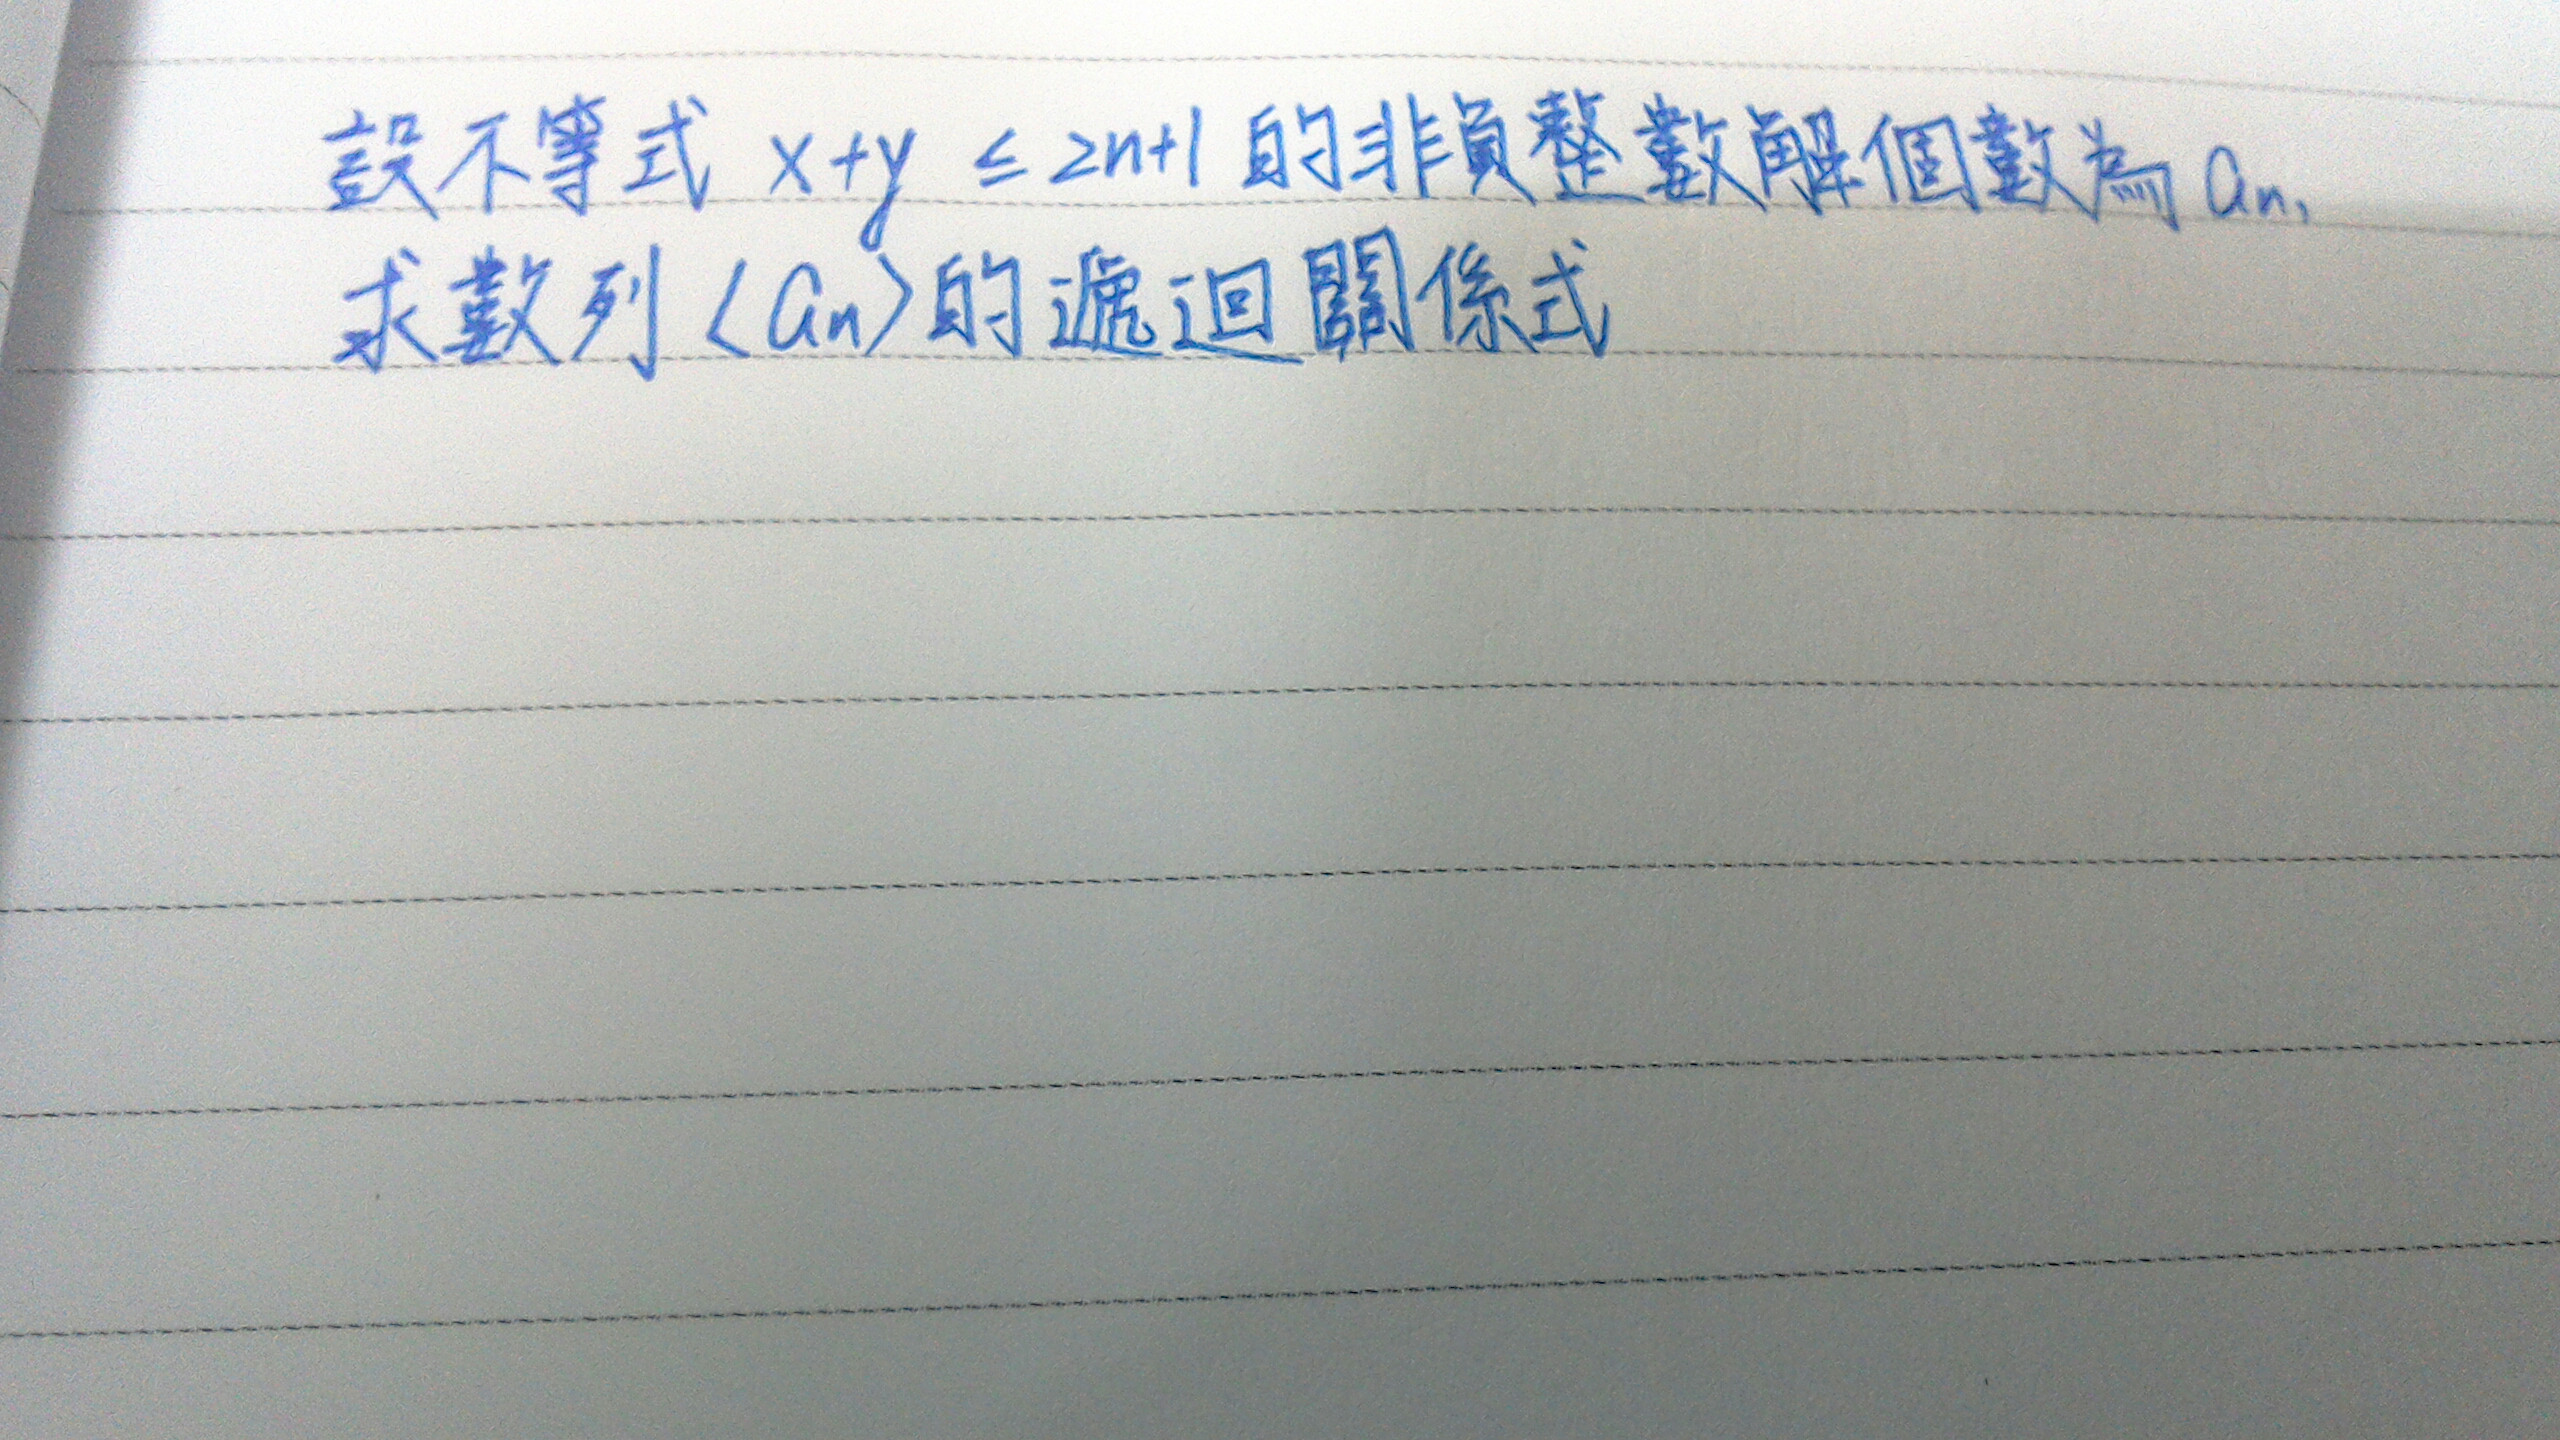 設不等式 x+y ≤ 2n+1 的非負整數解個數為 an,
求數列〈an〉的遞迴關係式